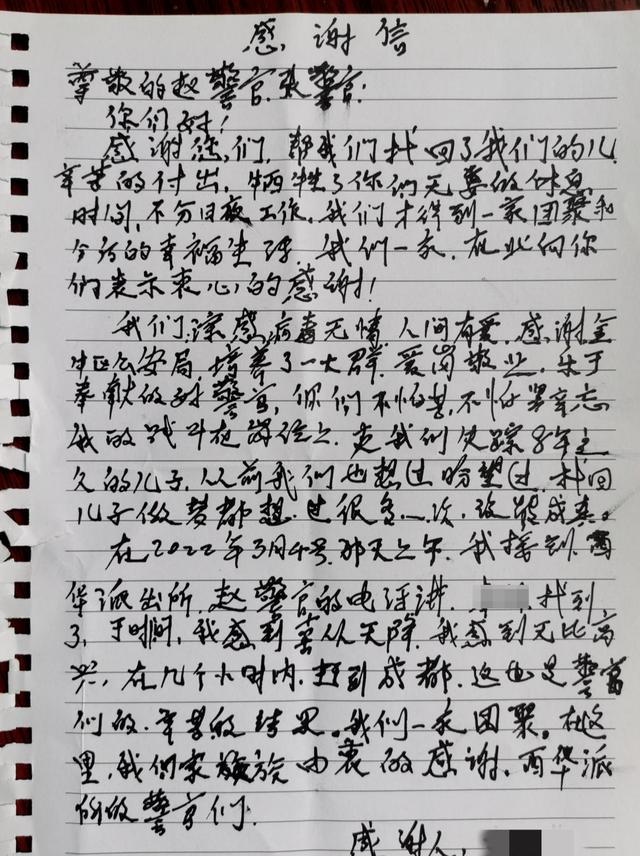 感谢信
尊敬的赵警官.张警官:
你们好!
感谢您们,帮我们找回了我们的儿,
辛苦的付出,牺牲了你们无数的休息
时间,不分日夜工作,我们才得到一家团聚和
今后的幸福生活,我们一家,在此向你
们表示衷心的感谢!
我们深感病毒无情,人间有爱,感谢金
牛区公安局,培养了一大群,爱岗敬业,乐于
奉献的好警官,你们不怕苦,不怕累辛忘
我的战斗在岗位上,是我们失踪8年之
久的儿子,从前我们也想过盼望过,找回
儿子做梦都想.过很多次,没能成真。
在2022年3月4号,那天上午,我接到,西
华派出所,赵警官的电话讲,找到
了,于时间,我感到喜从天降,我感到无比高
兴,在几个小时内,赶到成都,这也是警官
们的.辛苦的结果。我们一家团聚。在这
里,我们家族由衷的感谢,西华派
所的警官们.
感谢人: